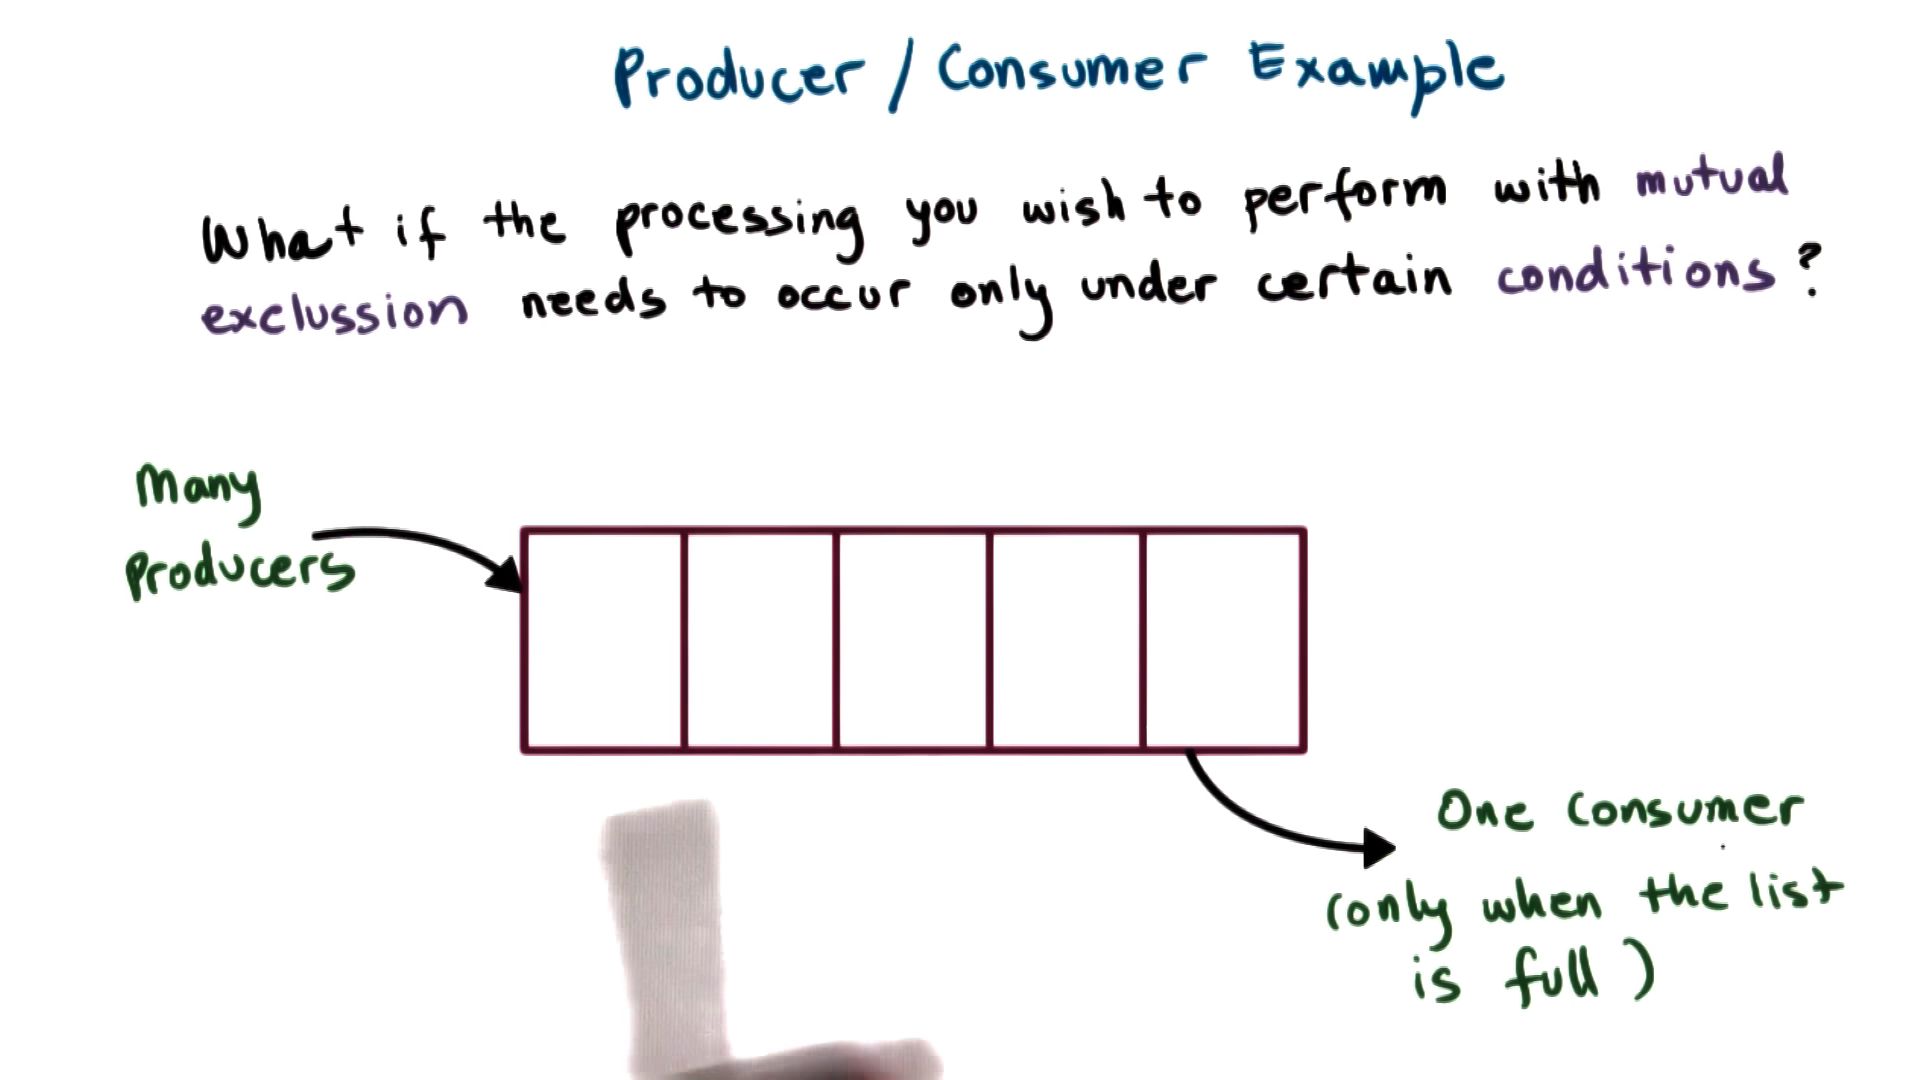 Producer / Consumer Example
What if the processing you wish to perform with mutual
exclussion needs to occur only under certain conditions?
Many
Producers
One Consumer
(only when the list
is full)